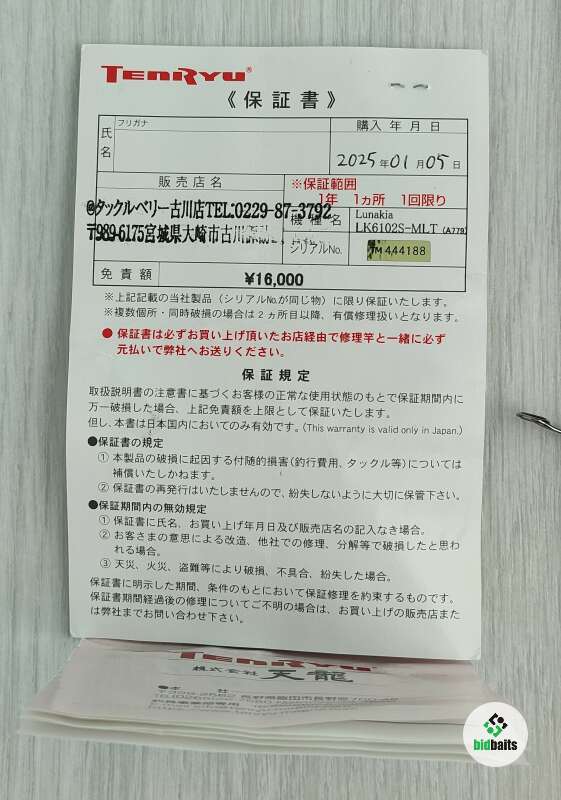 TENRYU®
《保証書》
フリガナ
氏名
購入年月日
2025年01月05日
販売店名
※保証範囲
1年 1ヵ所 1回限り
@タックルベリー古川店TEL:0229-87-3792
〒989-6175宮城県大崎市古川
機種名
Lunakia
LK6102S-MLT (A779)
シリアルNo.
TM 444188
免責額
¥16,000
※上記記載の当社製品(シリアルNo.が同じ物)に限り保証いたします。
※複数個所・同時破損の場合は2ヵ所目以降、有償修理扱いとなります。
●保証書は必ずお買い上げ頂いたお店経由で修理竿と一緒に必ず
元払いで弊社へお送りください。
保証規定
取扱説明書の注意書に基づくお客様の正常な使用状態のもとで保証期間内に
万一破損した場合、上記免責額を上限として保証いたします。
但し、本書は日本国内においてのみ有効です。(This warranty is valid only in Japan.)
●保証書の規定
① 本製品の破損に起因する付随的損害(釣行費用、タックル等)については
補償いたしかねます。
② 保証書の再発行はいたしませんので、紛失しないように大切に保管下さい。
●保証期間内の無効規定
① 保証書に氏名、お買い上げ年月日及び販売店名の記入なき場合。
② お客さまの意思による改造、他社での修理、分解等で破損したと思わ
れる場合。
③ 天災、火災、盗難等により破損、不具合、紛失した場合。
保証書に明示した期間、条件のもとにおいて保証修理を約束するものです。
保証書期間経過後の修理についてご不明の場合は、お買い上げの販売店また
は弊社までお問い合わせ下さい。
TENRYU
株式会社 天龍
●本社
bidbaits